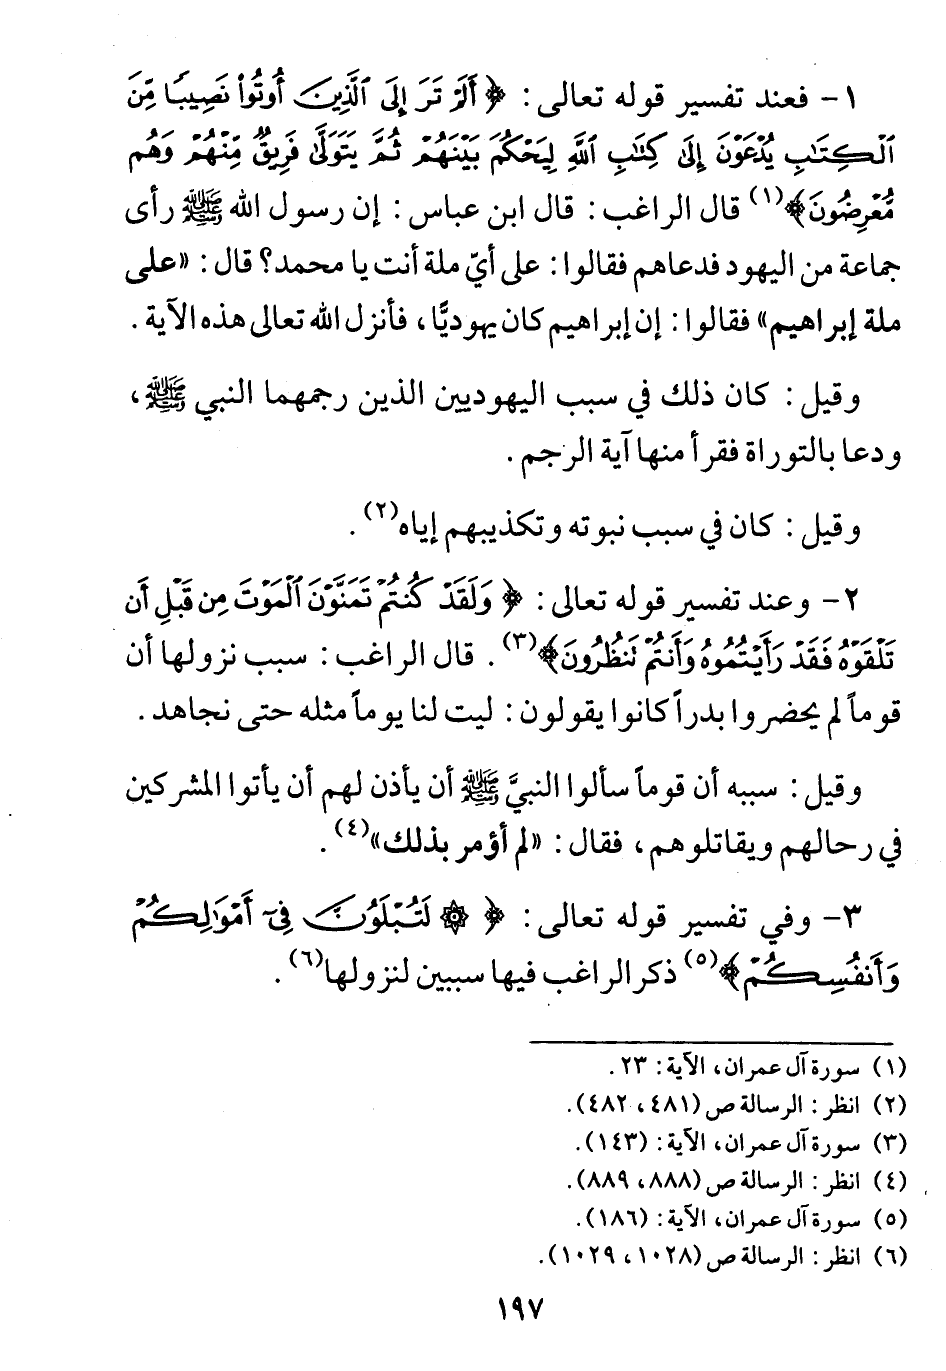 ١- فعند تفسير قوله تعالى: ﴿أَلَمْ تَرَ إِلَى ٱلَّذِينَ أُوتُوا۟ نَصِيبًا مِّنَ
ٱلْكِتَٰبِ يُدْعَوْنَ إِلَىٰ كِتَٰبِ ٱللَّهِ لِيَحْكُمَ بَيْنَهُمْ ثُمَّ يَتَوَلَّىٰ فَرِيقٌ مِّنْهُمْ وَهُم
مُّعْرِضُونَ﴾(١) قال الراغب: قال ابن عباس: إن رسول الله ﷺ رأى
جماعة من اليهود فدعاهم فقالوا: على أيّ ملة أنت يا محمد؟ قال: «على
ملة إبراهيم» فقالوا: إن إبراهيم كان يهوديًّا، فأنزل الله تعالى هذه الآية.
وقيل: كان ذلك في سبب اليهوديين الذين رجمهما النبي ﷺ،
ودعا بالتوراة فقرأ منها آية الرجم.
وقيل: كان في سبب نبوته وتكذيبهم إياه(٢).
٢- وعند تفسير قوله تعالى: ﴿وَلَقَدْ كُنتُمْ تَمَنَّوْنَ ٱلْمَوْتَ مِن قَبْلِ أَن
تَلْقَوْهُ فَقَدْ رَأَيْتُمُوهُ وَأَنتُمْ تَنظُرُونَ﴾(٣). قال الراغب: سبب نزولها أن
قوماً لم يحضروا بدراً كانوا يقولون: ليت لنا يوماً مثله حتى نجاهد.
وقيل: سببه أن قوماً سألوا النبيَّ ﷺ أن يأذن لهم أن يأتوا المشركين
في رحالهم ويقاتلوهم، فقال: «لم أؤمر بذلك»(٤).
٣- وفي تفسير قوله تعالى: ﴿۞ لَتُبْلَوُنَّ فِىٓ أَمْوَٰلِكُمْ
وَأَنفُسِكُمْ﴾(٥) ذكر الراغب فيها سببين لنزولها(٦).
(١) سورة آل عمران، الآية: ٢٣.
(٢) انظر: الرسالة ص (٤٨١، ٤٨٢).
(٣) سورة آل عمران، الآية: (١٤٣).
(٤) انظر: الرسالة ص (٨٨٨، ٨٨٩).
(٥) سورة آل عمران، الآية: (١٨٦).
(٦) انظر: الرسالة ص (١٠٢٨، ١٠٢٩).
١٩٧